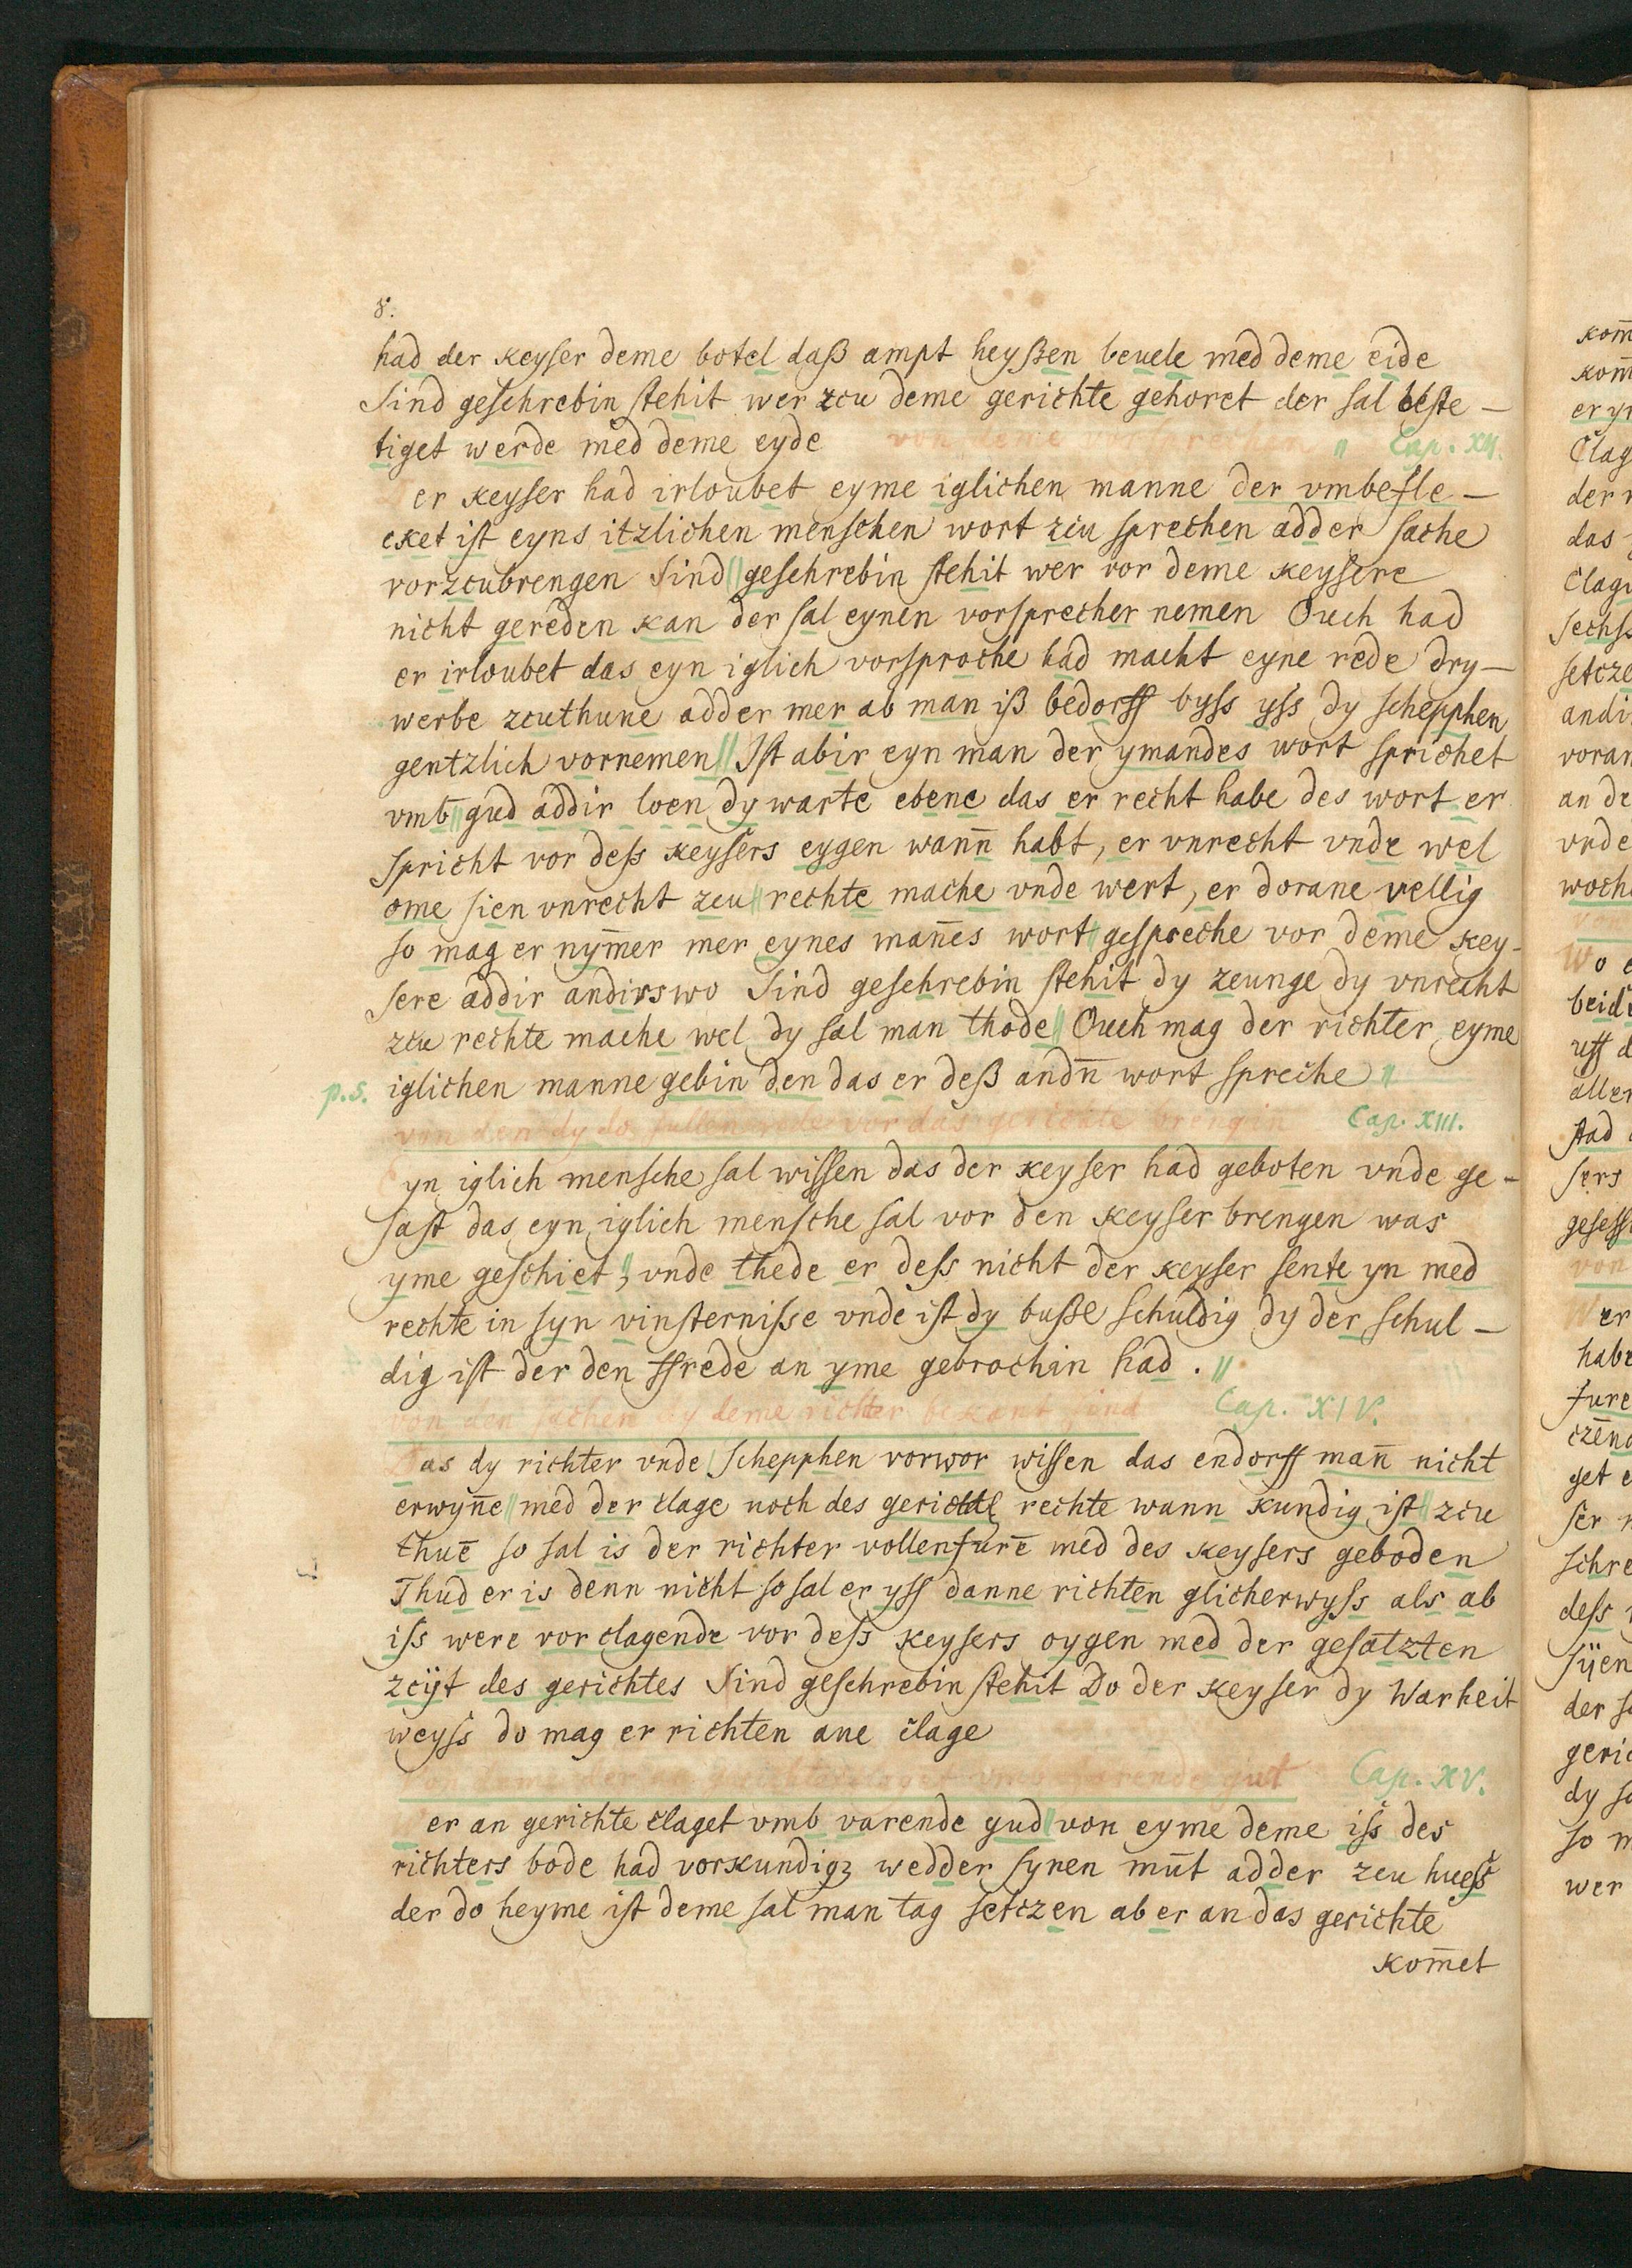 8.
had der keyser deme botel daß ampt heyßen beuele med deme eide
Sind geschrebin stehit wer zcu deme gerichte gehoret der sal beste-
tiget werde med deme eyde von deme vorsprechen Cap. XII.
er keyser had irloubet eyme iglichen manne der vmbefle-
cket ist eyns itzlichen menschen wort zcu sprechen adder sache
vorzcubrengen Sind geschrebin stehit wer vor deme keysere
nicht gereden kan der sal eynen vorsprecher nemen Ouch had
er irloubet das eyn iglich vorsproche had macht eyne rede dry-
werbe zcuthune adder mer ab man iß bedorff byss yss dy schepphen
gentzlich vornemen Ist abir eyn man der ymandes wort sprichet
vmb gud addir loen dy warte ebene das er recht habe des wort er
spricht vor dess keysers eygen wann̄ habt, er vnrecht vnde wel
ome sien vnrecht zcu rechte mache vnde wert, er dorane vellig
so mag er nym̄er mer eynes man̄es wort gespreche vor deme key-
sere addir andirswo Sind geschrebin stehit dy zcunge dy vnrecht
zcu rechte mache wel dy sal man thode Ouch mag der richter eyme
p.s. iglichen manne gebin den das er deß andn̄ wort spreche
von den dy do sullen rede vor das gerichte brengin Cap. XIII.
Eyn iglich mensche sal wissen das der keyser had geboten vnde ge-
sast das eyn iglich mensche sal vor den keyser brengen was
yme geschiet, vnde thede er dess nicht der keyser sente yn med
rechte in syn vinsternisse vnde ist dy buße schuldig dy der schul-
dig ist der den ffrede an yme gebrochin had.
von den sachen dy deme richter bekant sind Cap. XIV.
Das dy richter vnde schepphen vorwor wissen das endorff man̄ nicht
erwyn̄e med der clage noch des gerichtes rechte wann kundig ist zcu
thuē so sal is der richter vollenfurē med des keysers geboden
Thud er is denn nicht so sal er yss danne richten glicherwyss als ab
iss were vor clagende vor dess keysers oygen med der gesatzten
zcijt des gerichtes Sind geschrebin stehit Do der keyser dy Warheit
weyss do mag er richten ane clage
gut Cap. XV.
er an gerichte claget vmb varende gud von eyme deme iss des
richters bode had vorkundigz wedder synen mūt adder zcu huess
der do heyme ist deme sal man tag setczen ab er an das gerichte
kom̄et